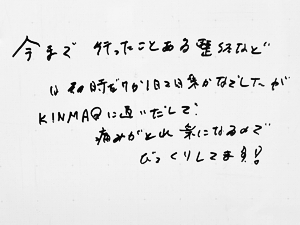 今まで 行ったことある整体など
は その時だけか1日は楽かなでしたが
KINMAQに通いだして
痛みがとれ 楽になるので
びっくりしてます!!